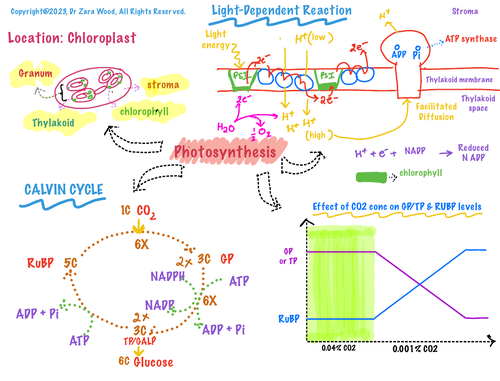 Copyright©2023, Dr Zara Wood, All Rights Reserved.
Light-Dependent Reaction
Stroma
H+
Location: Chloroplast
Light
energy
H+(low)
2e-
2e-
ATP synthase
ADP Pi
Granum
stroma
PSII
PSI
Thylakoid membrane
2e-
2e-
Thylakoid
space
Thylakoid
chlorophyll
H2O
½ O2
H+
H+
H+
(high)
Facilitated
Diffusion
Photosynthesis
H+ + e- + NADP → Reduced
NADP
chlorophyll
CALVIN CYCLE
1C CO2
6X
Effect of CO2 conc on GP/TP & RUBP levels
RuBP 5C
2x 3C GP
NADPH
ATP
GP
or TP
NADP
6X
ADP + Pi
ADP + Pi
ATP
2x
3C
TP/GALP
RuBP
6C Glucose
0.04% CO2
0.001% CO2